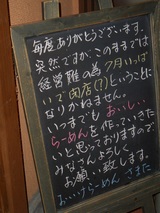 毎度ありがとうございます。
突然ですが、このままでは
経営難の為7月いっぱ
いで閉店(?)ということに
なりかねません。
いつまでも おいしい
らーめんを作っていきた
いと思っておりますので
みなさんよろしく
お願い致します。
おいらーめん さきた